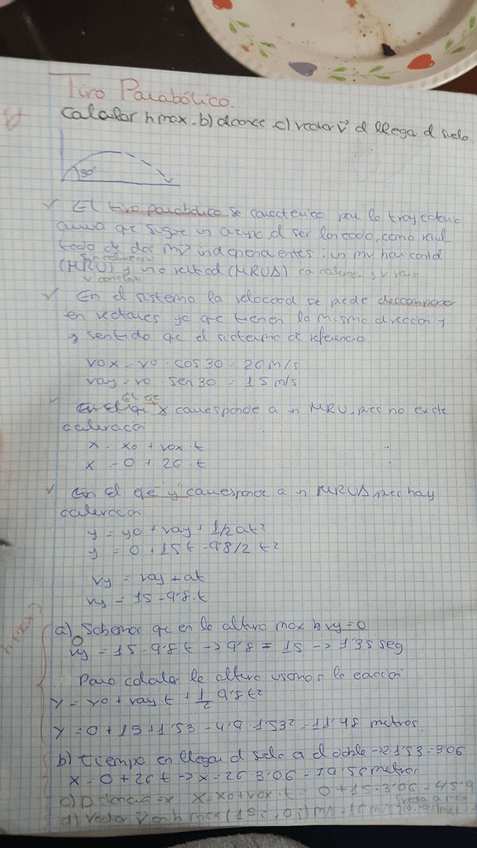 Tiro Parabólico.
Calcular hmax. b) alcance c) vector v d llega al suelo.
30°
El tiro parabólico se caracteriza por la trayectoria
curva que sigue un cuerpo al ser lanzado, como resul
tado de dos mv independientes: un mv horizontal
(MRU) y uno vertical (MRUA)
v constante
En el sistema la velocidad se puede descomponer
en vectores ya que tienen la misma direccion y
y sentido que el sistema de referencia
vox = vo · cos 30 = 26 m/s
voy = vo · sen 30 = 15 m/s
El eje
En el eje X corresponde a un MRU, pues no existe
aceleracion
x = xo + vox · t
x = 0 + 26 · t
En el eje y corresponde a un MRUA pues hay
aceleracion
y = yo + voy + 1/2 at²
y = 0 + 15t - 9,8/2 t²
vy = voy + at
vy = 15 - 9,8 · t
hmax?
a) Sabemos que en la altura max h vy = 0
0
vy = 15 - 9,8 t -> 9,8 = 15 -> 1,35 seg
Para calcular la altura usamos la ecuación
y = yo + voy · t + 1/2 9,8t²
y = 0 + 15 + 1,53 - 4,9 · 1,53² = 11,48 metros
b) tiempo en llegar al suelo a el doble -> 2·1,53 = 3,06
x = 0 + 26t -> x = 26 · 3,06 = 79,56 metros
c) Distancia x x = xo + vox · t = 0 + 15 · 3,06 = 45,9
d) vector v en h max